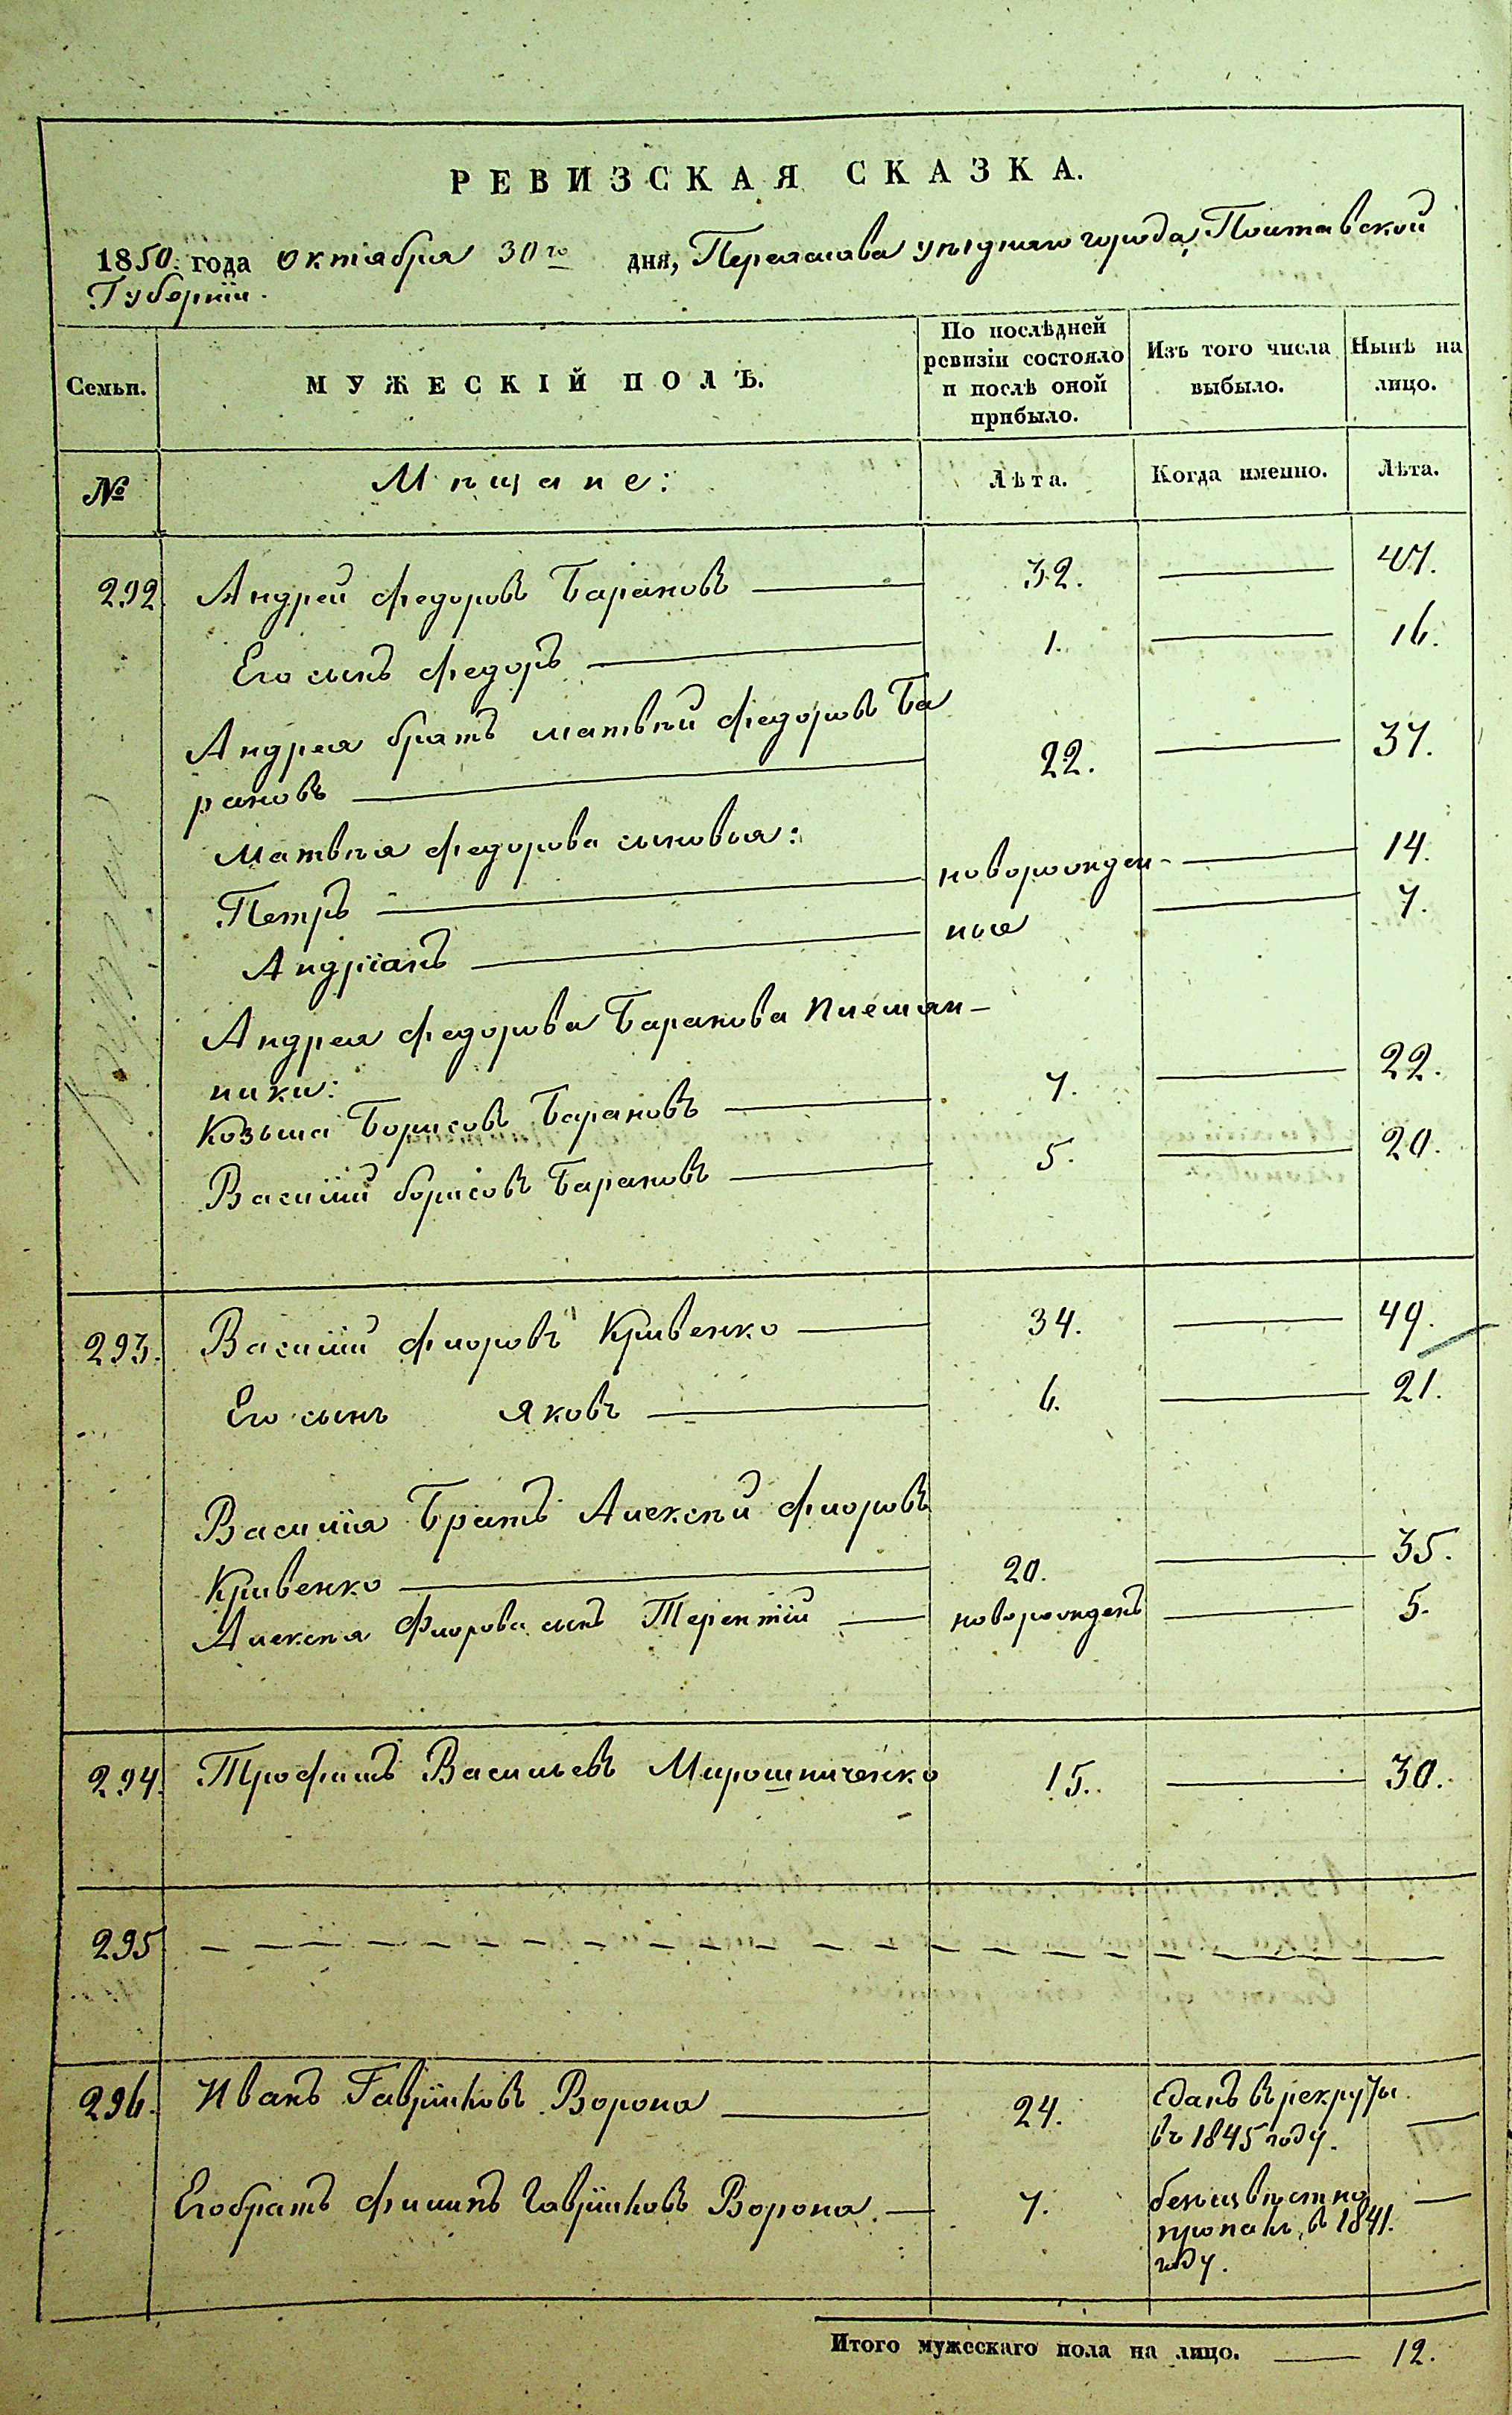 РЕВИЗСКАЯ СКАЗКА.
1850. года Октября 30го дня, Переяслава уѣзднаго города, Полтавской
Губерніи.
Семьи.
МУЖЕСКІЙ ПОЛЪ.
По послѣдней ревизіи состояло и послѣ оной прибыло.
Изъ того числа выбыло.
Нынѣ на лицо.
№ Мѣщане: Лѣта. Когда именно. Лѣта.
292. Андрей Федоровъ Барановъ — 32. — 47.
Его сынъ Федоръ — 1. — 16.
Андрея братъ Матвѣй Федоровъ Ба
рановъ — 22. — 37.
Матвѣя Федорова сыновья:
Петръ — новорожден- — 14.
Андріанъ — ные — 7.
Андрея Федорова Баранова племян-
ники:
Козьма Борисовъ Барановъ — 7. — 22.
Василій Борисовъ Барановъ — 5. — 20.
293. Василій Флоровъ Кривенко — 34. — 49.
Его сынъ Яковъ — 6. — 21.
Василія Братъ Алексѣй Флоровъ
Кривенко — 20. — 35.
Алексѣя Флорова сынъ Терентій — новорожденъ — 5.
294. Трофимъ Васильевъ Мирошниченко 15. — 30.
295 — — — — — — — — — —
296. Иванъ Гавриловъ Ворона — 24. Сданъ въ рекруты
въ 1845 году. —
Его братъ Филипъ Гавриловъ Ворона. — 7. безъизвѣстно —
пропалъ, в 1841.
году.
Итого мужескаго пола на лицо. — 12.